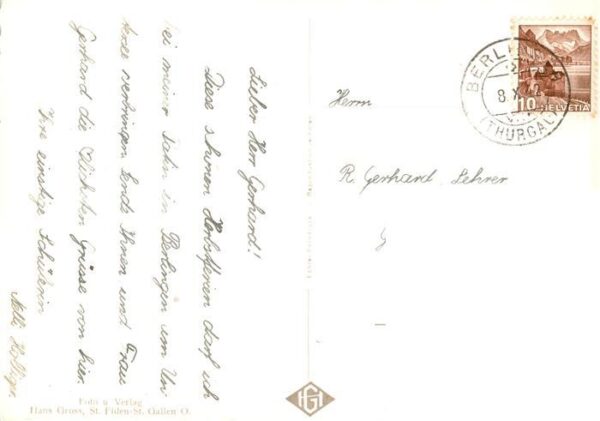 Lieber Herr Gerhard!
Diese schönen Herbstferien darf ich
bei meiner Tante in Berlingen am Un
tersee verbringen. Sende Ihnen und Frau
Gerhard die Grüsse von hier.
Ihre einstige Schülerin
Foto u Verlag
Hans Gross, St. Fiden-St. Gallen O.
HG
Herrn
R. Gerhard, Lehrer
BERLINGEN
8.X.42
(THURGAU)
10 HELVETIA